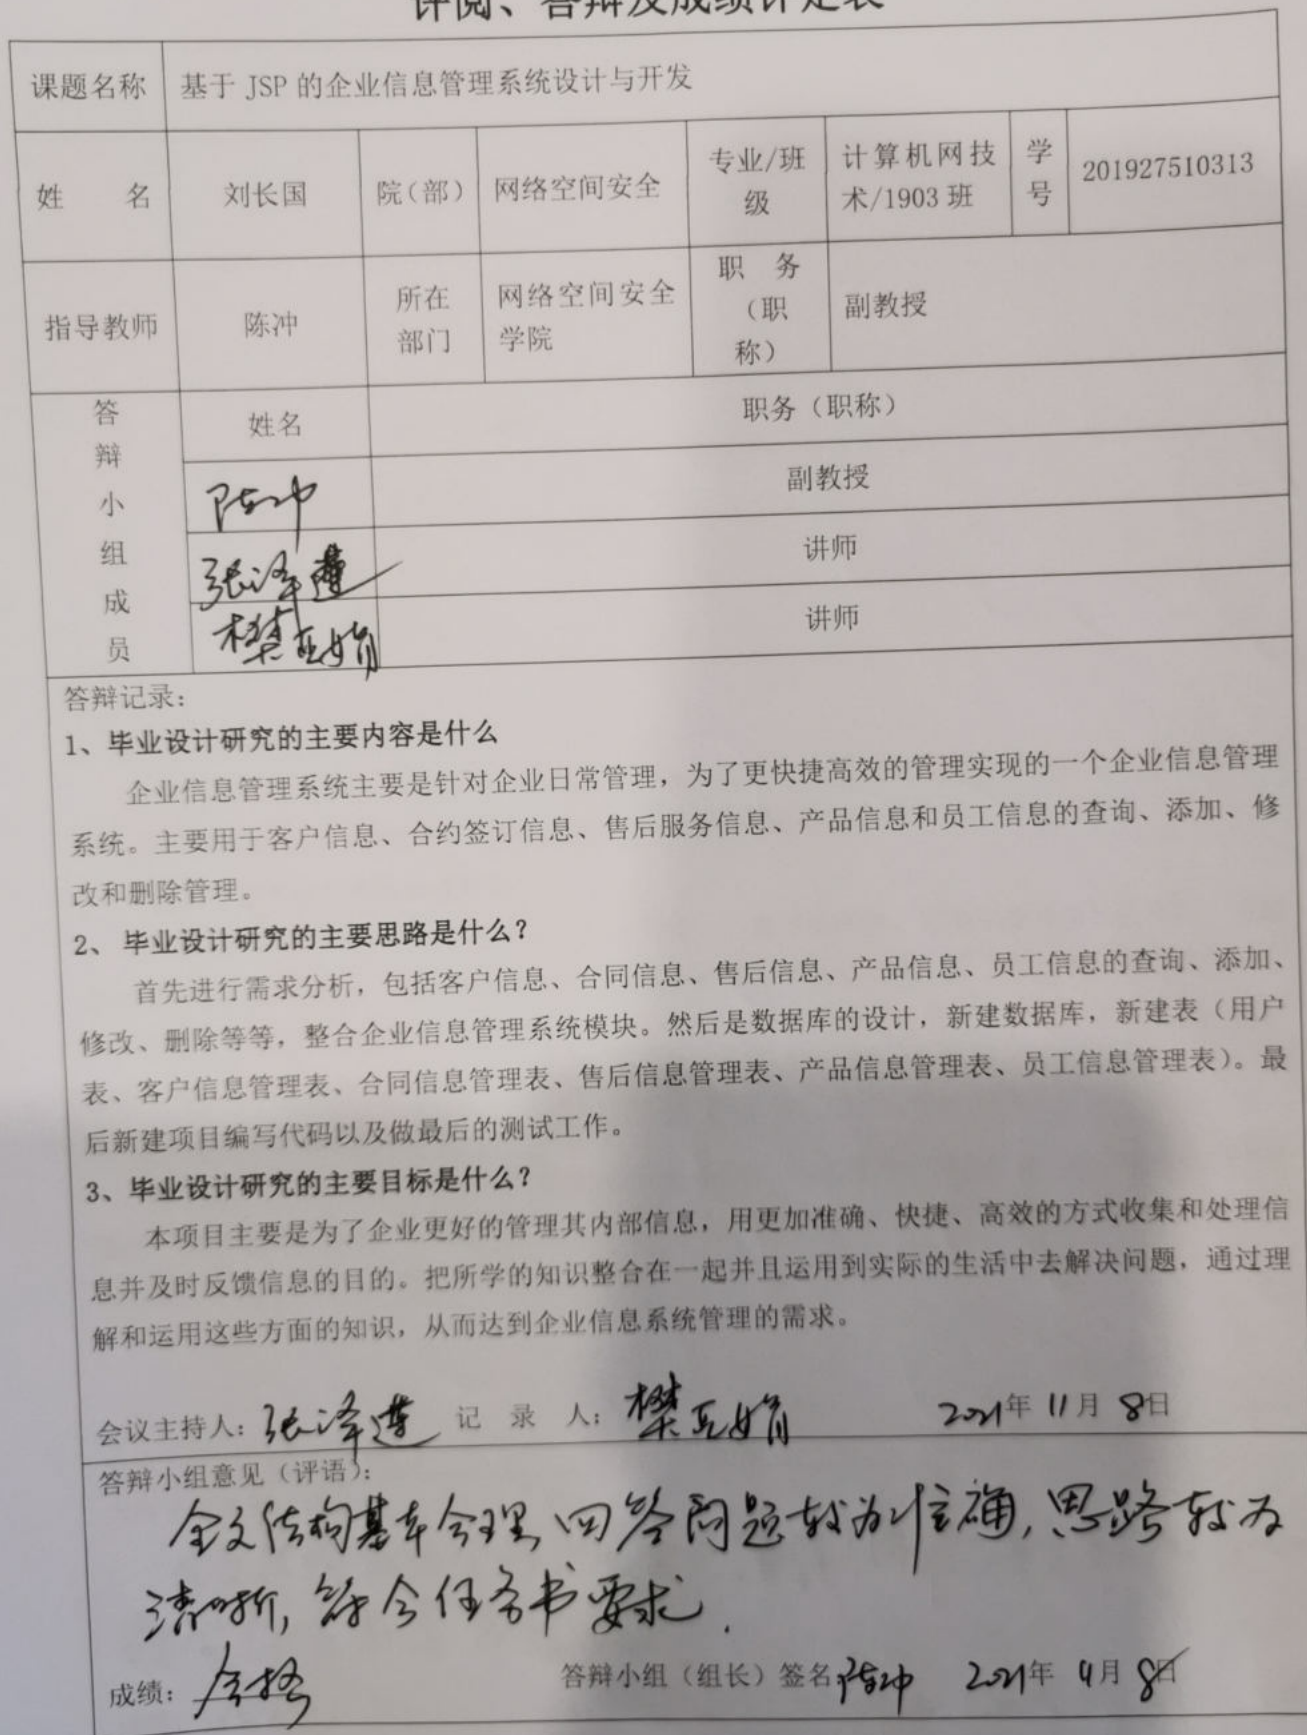 评阅、答辩及成绩评定表
课题名称 基于 JSP 的企业信息管理系统设计与开发
姓 名 刘长国 院(部) 网络空间安全 专业/班级 计算机网技术/1903 班 学号 201927510313
指导教师 陈冲 所在部门 网络空间安全学院 职 务（职称） 副教授
答辩小组成员 姓名 职务（职称）
陈冲 副教授
张泽莲 讲师
樊亚娟 讲师
答辩记录：
1、毕业设计研究的主要内容是什么
企业信息管理系统主要是针对企业日常管理，为了更快捷高效的管理实现的一个企业信息管理
系统。主要用于客户信息、合约签订信息、售后服务信息、产品信息和员工信息的查询、添加、修
改和删除管理。
2、 毕业设计研究的主要思路是什么？
首先进行需求分析，包括客户信息、合同信息、售后信息、产品信息、员工信息的查询、添加、
修改、删除等等，整合企业信息管理系统模块。然后是数据库的设计，新建数据库，新建表（用户
表、客户信息管理表、合同信息管理表、售后信息管理表、产品信息管理表、员工信息管理表）。最
后新建项目编写代码以及做最后的测试工作。
3、毕业设计研究的主要目标是什么？
本项目主要是为了企业更好的管理其内部信息，用更加准确、快捷、高效的方式收集和处理信
息并及时反馈信息的目的。把所学的知识整合在一起并且运用到实际的生活中去解决问题，通过理
解和运用这些方面的知识，从而达到企业信息系统管理的需求。
会议主持人：张泽莲 记 录 人：樊亚娟 2021年 11月 8日
答辩小组意见（评语）：
全文结构基本合理，回答问题较为准确，思路较为
清晰，符合任务书要求.
成绩：合格 答辩小组（组长）签名 陈冲 2021年 11月 8日